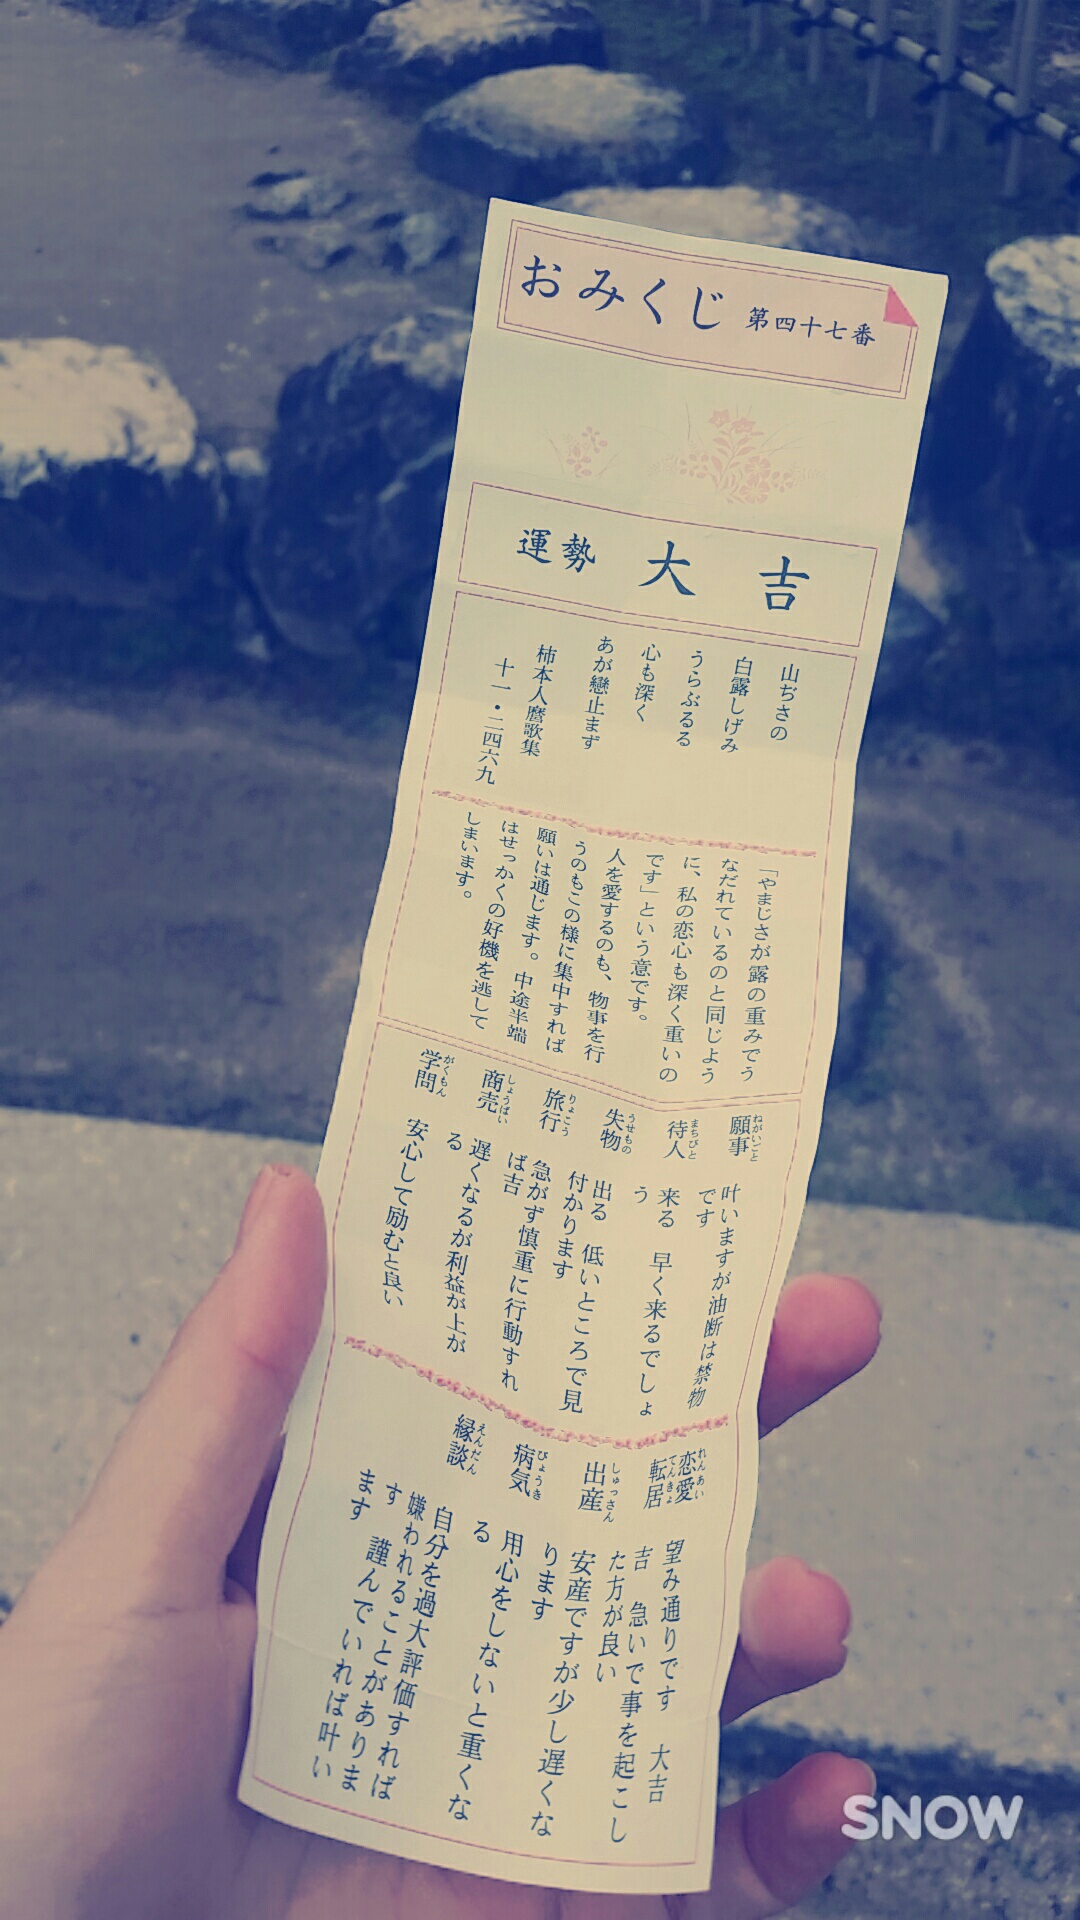 おみくじ 第四十七番
運勢 大吉
山ぢさの
白露しげみ
うらぶるる
心も深く
あが戀止まず
柿本人麿歌集
十一・二四六九
「やまじさが露の重みでう
なだれているのと同じよう
に、私の恋心も深く重いの
です」という意です。
人を愛するのも、物事を行
うのもこの様に集中すれば
願いは通じます。中途半端
はせっかくの好機を逃して
しまいます。
願事 ねがいごと
叶いますが油断は禁物
です
待人 まちびと
来る 早く来るでしょ
う
失物 うせもの
出る 低いところで見
付かります
旅行 りょこう
急がず慎重に行動すれ
ば吉
商売 しょうばい
遅くなるが利益が上が
る
学問 がくもん
安心して励むと良い
恋愛 れんあい
望み通りです 大吉
転居 てんきょ
吉 急いで事を起こし
た方が良い
出産 しゅっさん
安産ですが少し遅くな
ります
病気 びょうき
用心をしないと重くな
る
縁談 えんだん
自分を過大評価すれば
嫌われることがありま
す 謹んでいれば叶い
ます
SNOW